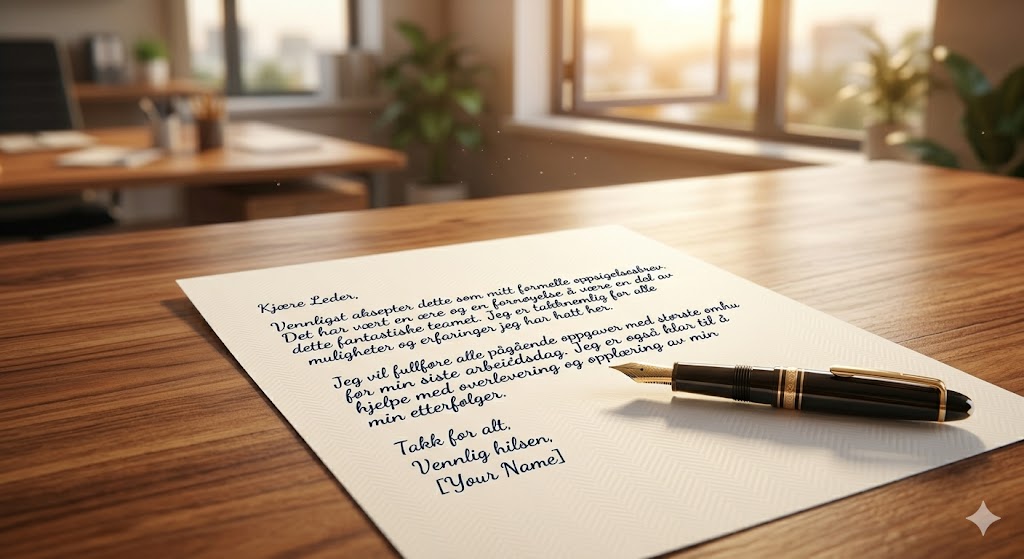 Kjære Leder,
Vennligst aksepter dette som mitt formelle oppsigelsesbrev.
Det har vært en ære og en fornøyelse å være en del av
dette fantastiske teamet. Jeg er takknemlig for alle
muligheter og erfaringer jeg har hatt her.
Jeg vil fullføre alle pågående oppgaver med største omhu
før min siste arbeidsdag. Jeg er også klar til å
hjelpe med overlevering og opplæring av min
min etterfølger.
Takk for alt.
Vennlig hilsen,
[Your Name]